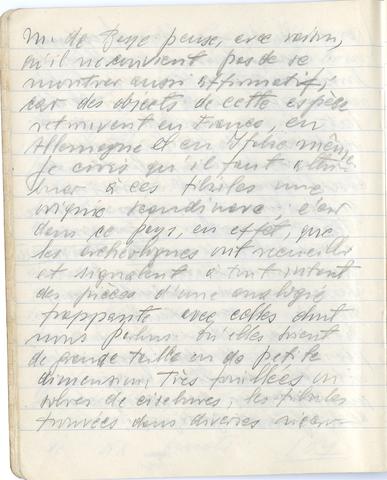 M. de Baye pense, avec raison,
qu'il ne convient pas de se
montrer aussi affirmatif,
car des objets de cette espèce
se trouvent en France, en
Allemagne et en Italie même.
Je crois qu'il faut attri
buer à ces fibules une
origine scandinave; c'est
dans ce pays, en effet, que
les archéologues ont recueilli
et signalent à tout instant
des pièces d'une analogie
frappante avec celles dont
nous parlons. Qu'elles soient
de grande taille ou de petite
dimension, très fouillées ou
sobres de ciselures, les fibules
trouvées dans diverses